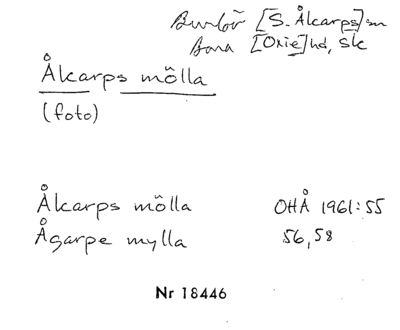 Burlöv [S. Åkarps] sn
Bara [Oxie] hd, Sk
Åkarps mölla
(foto)
Åkarps mölla OHÅ 1961:55
Ågarpe mylla 56, 58
Nr 18446